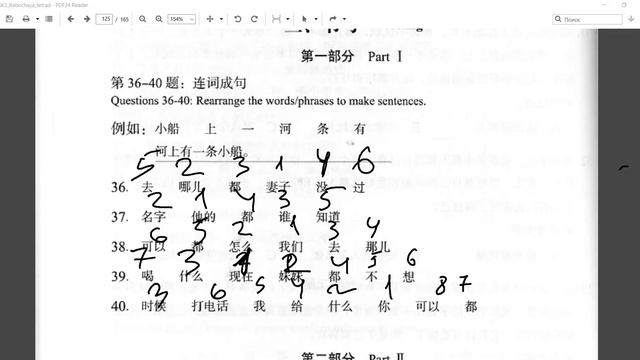 125 / 165
154%
Поиск
第一部分 Part Ⅰ
第 36-40 题：连词成句
Questions 36-40: Rearrange the words/phrases to make sentences.
例如：小船 上 一 河 条 有
河上有一条小船。
5 2 3 1 4 6
36. 去 哪儿 都 妻子 没 过
2 1 4 3 5
37. 名字 他的 都 谁 知道
6 5 2 1 3 4
38. 可以 都 怎么 我们 去 那儿
7 3 4 5 6
39. 喝 什么 现在 妹妹 都 不 想
3 6 5 4 2 1 8 7
40. 时候 打电话 我 给 什么 你 可以 都
第二部分 Part Ⅱ